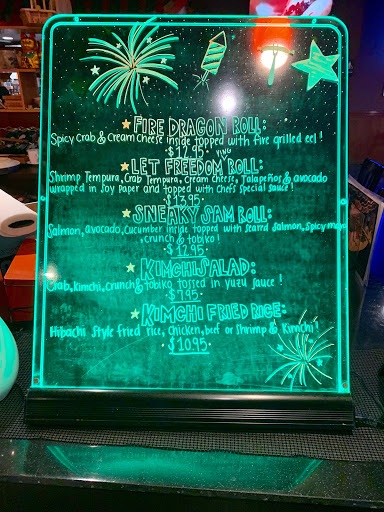 FIRE DRAGON ROLL:
Spicy Crab & Cream Cheese inside topped with fire grilled eel!
·$12.95·
LET FREEDOM RING ROLL:
Shrimp Tempura, Crab Tempura, Cream Cheese, Jalapeños & avocado
wrapped in Soy Paper and topped with Chefs Special sauce!
·$13.95·
SNEAKY SAM ROLL:
Salmon, avocado, Cucumber inside topped with seared salmon, spicy mayo
crunch & tobiko!
·$12.95·
KIMCHI SALAD:
Crab, Kimchi, crunch & tobiko tossed in yuzu sauce!
$7.95·
KIMCHI FRIED RICE:
Hibachi Style fried rice, Chicken, beef or Shrimp & Kimchi!
·$10.95·